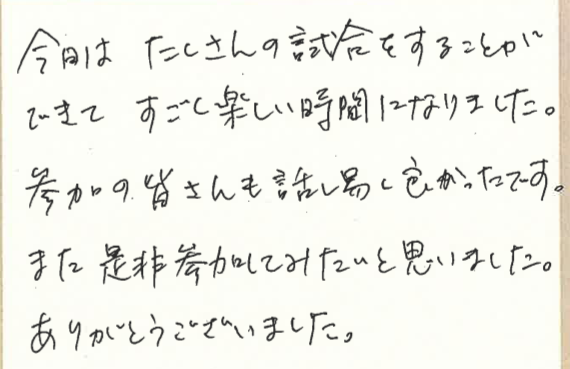 今日は たくさんの試合をすることが
できて すごく楽しい時間になりました。
参加の皆さんも話し易く良かったです。
また是非参加してみたいと思いました。
ありがとうございました。